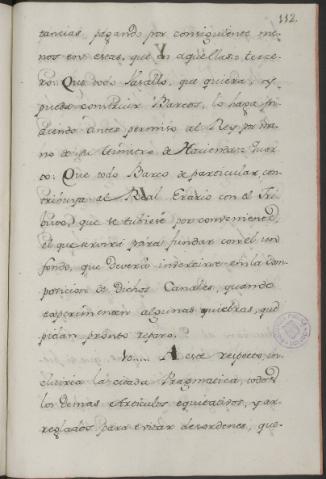 112.
tancias, pagando por consiguiente me-
nos en estas, que en aquellas: terce-
ro: Que todo Vasallo, que quiera, y
pueda construir Barcos, lo haga pi-
diendo antes permiso al Rey por ma-
no de su Ministro de Hacienda: Quar-
to: Que todo Barco de particular, con-
tribuya al Real Erario con el Tri-
buto, que se tubiese por conveniente,
el que servirá para fundar con él, un
fondo, que deverá invertirse en la Com-
posicion de dichos Canales, quando
experimenten algunas quiebras, que
pidan pronto reparo.
10..... A este respecto, in-
cluiria la citada Pragmatica, todos
los demas Articulos equitativos, y ar-
reglados para evitar desordenes, que